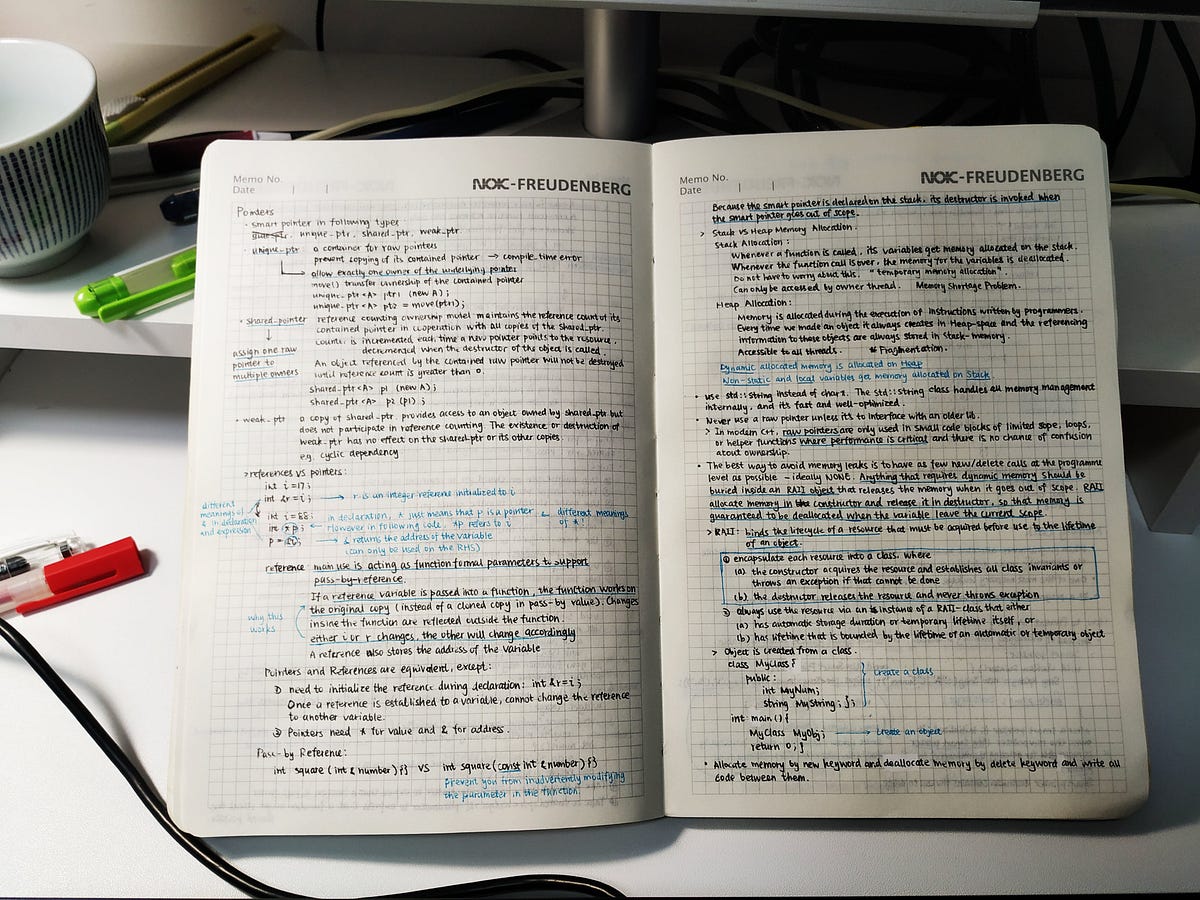 Memo No.
Date
NOK-FREUDENBERG
Pointers
• smart pointer in following types
auto-ptr, unique-ptr, shared-ptr, weak-ptr
unique-ptr a container for raw pointers
prevent copying of its contained pointer → compile-time error
allow exactly one owner of the underlying pointer
move() transfer ownership of the contained pointer
unique-ptr<A> ptr1 (new A);
unique-ptr<A> ptr2 = move(ptr1);
• shared-pointer reference counting ownership model maintains the reference count of its
contained pointer in cooperation with all copies of the shared-ptr.
↓ counter is incremented each time a new pointer points to the resource,
assign one raw decremented when the destructor of the object is called.
pointer to An object referenced by the contained raw pointer will not be destroyed
multiple owners until reference count is greater than 0.
shared-ptr<A> p1 (new A);
shared-ptr<A> p2 (p1);
• weak-ptr a copy of shared-ptr, provides access to an object owned by shared-ptr but
does not participate in reference counting. The existence or destruction of
weak-ptr has no effect on the shared-ptr or its other copies
e.g. cyclic dependency
> references vs pointers:
int i=17;
int &r=i; → r is an integer reference initialized to i
different
meanings of
& in declaration
and expression
int i=88; in declaration, * just means that p is a pointer, different meanings
int *p; ← However in following code, *p refers to i of *!
p = &i; → & returns the address of the variable
(can only be used on the RHS)
reference main use is acting as function formal parameters to support
pass-by-reference.
If a reference variable is passed into a function, the function works on
the original copy (instead of a cloned copy in pass-by value). Changes
why this
works
inside the function are reflected outside the function.
either i or r changes, the other will change accordingly
A reference also stores the address of the variable
Pointers and References are equivalent, except:
① need to initialize the reference during declaration: int &r=i;
Once a reference is established to a variable, cannot change the reference
to another variable.
② Pointers need * for value and & for address.
Pass-by Reference:
int square (int & number) {} VS int square (const int & number) {}
prevent you from inadvertently modifying
the parameter in the function.
Memo No.
Date
NOK-FREUDENBERG
Because the smart pointer is declared on the stack, its destructor is invoked when
the smart pointer goes out of scope.
> Stack VS Heap Memory Allocation.
Stack Allocation:
Whenever a function is called, its variables get memory allocated on the stack.
Whenever the function call is over, the memory for the variables is deallocated.
Do not have to worry about this. "temporary memory allocation"
Can only be accessed by owner thread. Memory Shortage Problem.
Heap Allocation:
Memory is allocated during the execution of instructions written by programmers.
Every time we made an object it always creates in Heap-space and the referencing
information to those objects are always stored in Stack-memory.
Accessible to all threads. * Fragmentation.
Dynamic allocated memory is allocated on Heap
Non-static and local variables get memory allocated on Stack
• use std::string instead of char*. The std::string class handles all memory management
internally, and it's fast and well-optimized.
• Never use a raw pointer unless it's to interface with an older lib.
> In modern C++, raw pointers are only used in small code blocks of limited scope, loops,
or helper functions where performance is critical and there is no chance of confusion
about ownership.
• The best way to avoid memory leaks is to have as few new/delete calls at the programme
level as possible – ideally NONE. Anything that requires dynamic memory should be
buried inside an RAII object that releases the memory when it goes out of scope. RAII
allocate memory in the constructor and release it in destructor, so that memory is
guaranteed to be deallocated when the variable leave the current scope.
> RAII: binds the lifecycle of a resource that must be acquired before use to the lifetime
of an object.
① encapsulate each resource into a class, where
(a) the constructor acquires the resource and establishes all class invariants or
throws an exception if that cannot be done
(b) the destructor releases the resource and never throws exception
② always use the resource via an instance of a RAII-class that either
(a) has automatic storage duration or temporary lifetime itself, or
(b) has lifetime that is bounded by the lifetime of an automatic or temporary object
> Object is created from a class.
class MyClass {
public: create a class
int MyNum;
string MyString; };
int main () {
MyClass MyObj; → create an object
return 0; }
• Allocate memory by new keyword and deallocate memory by delete keyword and write all
code between them.